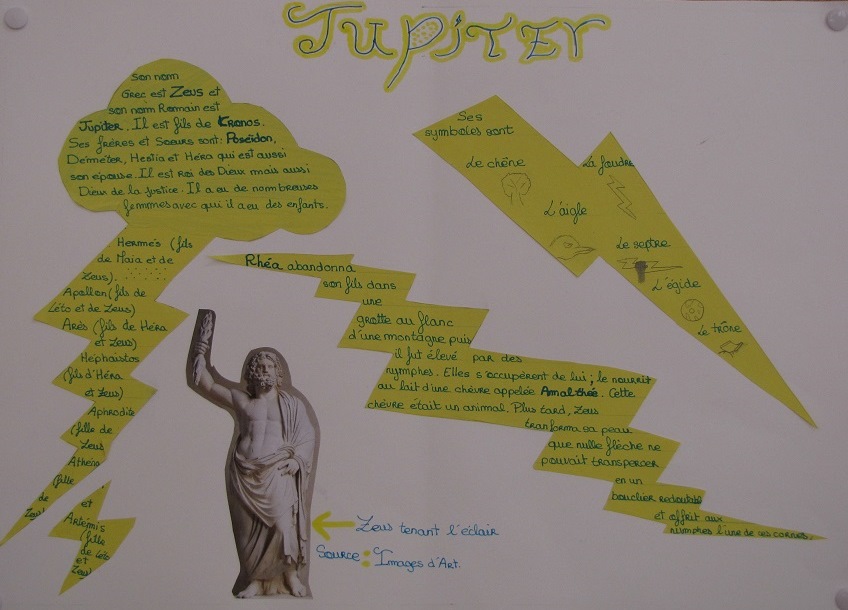 Jupiter
Son nom
Grec est Zeus et
son nom Romain est
Jupiter. Il est fils de Kronos.
Ses frères et Soeurs sont: Poseïdon,
Déméter, Hestia et Héra qui est aussi
son epouse. Il est Roi des Dieux mais aussi
Dieux de la justice. Il a eu de nombreuses
femmes avec qui il a eu des enfants.
Hermès (fils
de Maïa et de
Zeus).
Apollon (fils de
Léto et de Zeus)
Arès (fils de Héra
et Zeus)
Héphaïstos
(fils d'Héra
et Zeus)
Aphrodite
(fille de
Zeus
Athéna
(fille
de
Zeus)
et
Artémis
(fille
de Léto
et
Zeus)
Rhéa abandonna
son fils dans
une
grotte au flanc
d'une montagne puis
il fut élevé par des
nymphes. Elles s'occupèrent de lui ; le nourrit
au lait d'une chèvre appelée Amalthée. Cette
chèvre était un animal. Plus tard, Zeus
transforma sa peau
que nulle flèche ne
pouvait transpercer
en un
bouclier redoutable
et offrit aux
nymphes l'une de ces cornes.
Ses
symboles sont
Le chêne
La foudre
L'aigle
Le septre
L'égide
Le trône
Zeus tenant l'éclair
Source : Images d'Art.